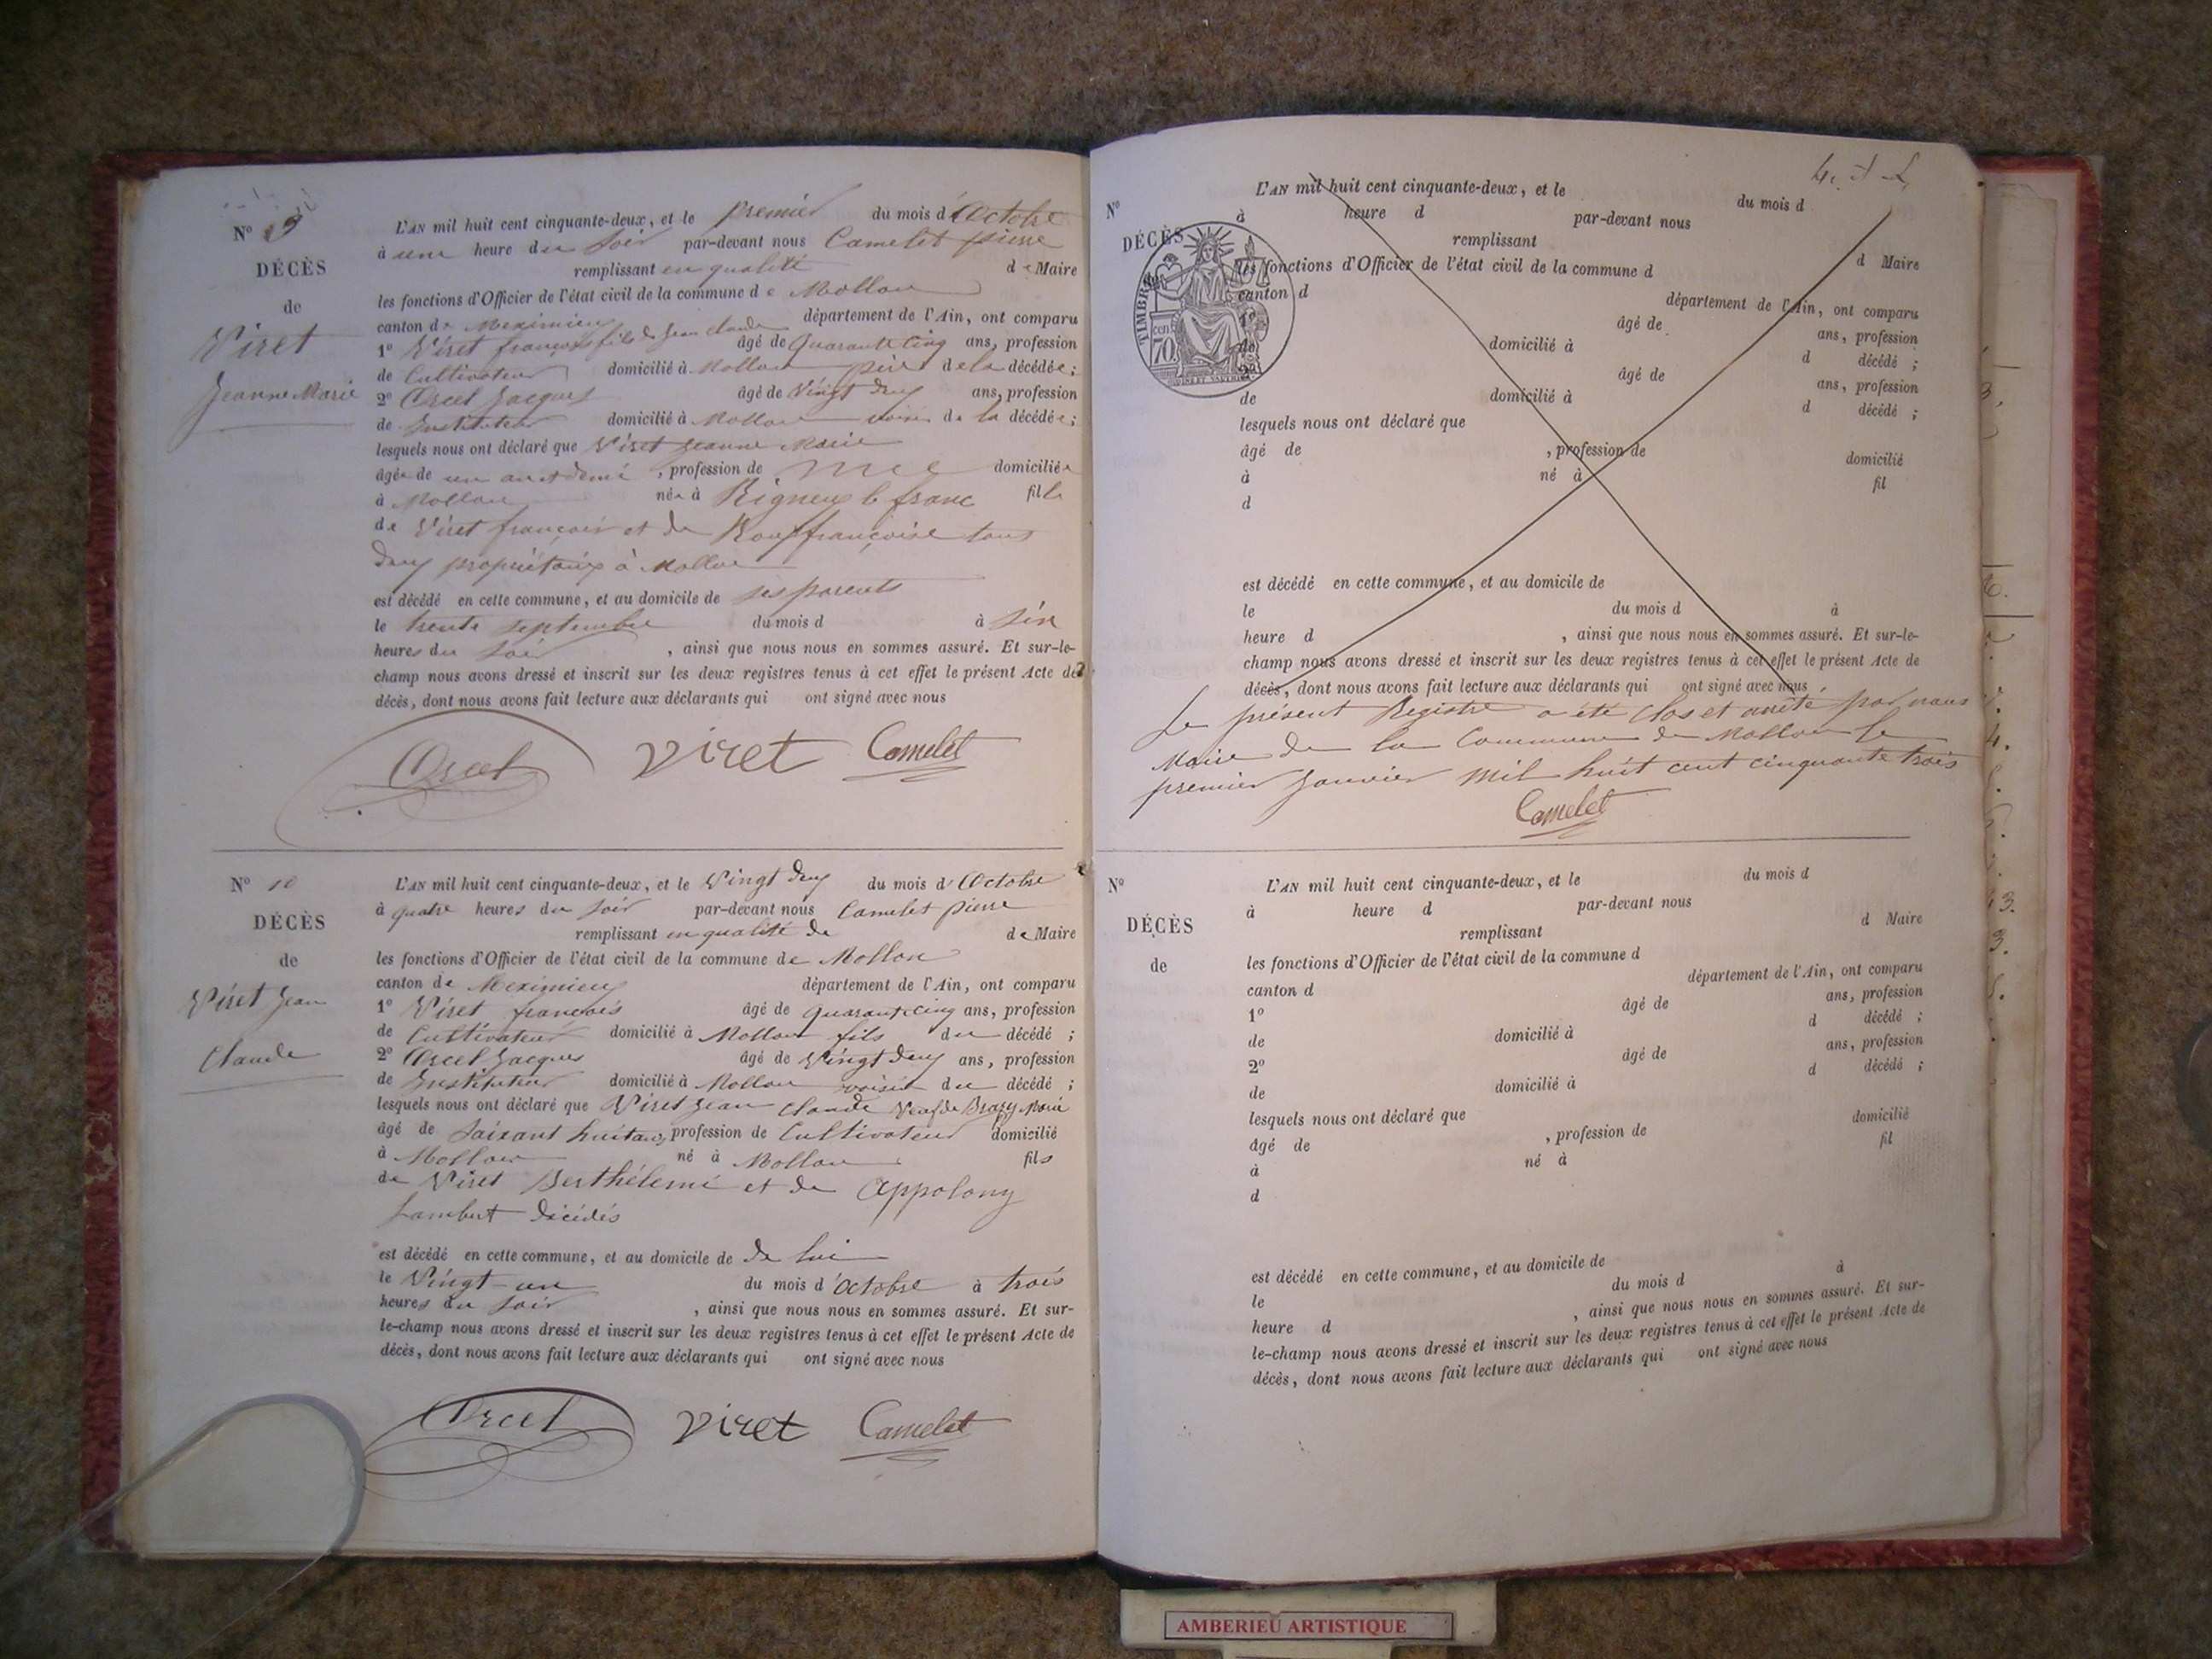 N° 9
DÉCÈS
de
Viret
Jeanne Marie
L'AN mil huit cent cinquante-deux, et le premier du mois d'Octobre
à une heure du soir par-devant nous Camelet pierre
remplissant en qualité de Maire
les fonctions d'Officier de l'état civil de la commune de Mollon
canton de Meximieu département de l'Ain, ont comparu
1° Viret françois fils de Jean Claude âgé de quarante cinq ans, profession
de Cultivateur domicilié à Mollon père de la décédée ;
2° Orcel Jacques âgé de Vingt deux ans, profession
de Instituteur domicilié à Mollon voisin de la décédée ;
lesquels nous ont déclaré que Viret Jeanne Marie
âgée de un an et demi , profession de domiciliée
à Mollon née à Rigneux le franc fille
de Viret françois et de Roux françoise tous
deux propriétaires à Mollon
est décédé en cette commune, et au domicile de ses parents
le trente septembre du mois d à six
heures du soir , ainsi que nous nous en sommes assuré. Et sur-le-
champ nous avons dressé et inscrit sur les deux registres tenus à cet effet le présent Acte de
décès, dont nous avons fait lecture aux déclarants qui ont signé avec nous
Orcel Viret Camelet
N° 10
DÉCÈS
de
Viret Jean
Claude
L'AN mil huit cent cinquante-deux, et le Vingt deux du mois d'Octobre
à quatre heures du soir par-devant nous Camelet pierre
remplissant en qualité de de Maire
les fonctions d'Officier de l'état civil de la commune de Mollon
canton de Meximieu département de l'Ain, ont comparu
1° Viret françois âgé de quarante cinq ans, profession
de Cultivateur domicilié à Mollon fils du décédé ;
2° Orcel Jacques âgé de Vingt deux ans, profession
de Instituteur domicilié à Mollon voisin du décédé ;
lesquels nous ont déclaré que Viret Jean Claude Veuf de Marie
âgé de soixant huit ans, profession de Cultivateur domicilié
à Mollon né à Mollon fils
de Viret Berthélemi et de Appolony
Lambert décédés
est décédé en cette commune, et au domicile de de lui
le Vingt-un du mois d'octobre à trois
heures du soir , ainsi que nous nous en sommes assuré. Et sur-
le-champ nous avons dressé et inscrit sur les deux registres tenus à cet effet le présent Acte de
décès, dont nous avons fait lecture aux déclarants qui ont signé avec nous
Orcel Viret Camelet
N°
DÉCÈS
TIMBRE
70 cent
L'AN mil huit cent cinquante-deux, et le du mois d
à heure d par-devant nous
remplissant d Maire
les fonctions d'Officier de l'état civil de la commune d
canton d département de l'Ain, ont comparu
1° âgé de ans, profession
de domicilié à d décédé ;
2° âgé de ans, profession
de domicilié à d décédé ;
lesquels nous ont déclaré que
âgé de , profession de domicilié
à né à fil
d
est décédé en cette commune, et au domicile de
le du mois d à
heure d , ainsi que nous nous en sommes assuré. Et sur-le-
champ nous avons dressé et inscrit sur les deux registres tenus à cet effet le présent Acte de
décès, dont nous avons fait lecture aux déclarants qui ont signé avec nous
Le présent Registre a été clos et arrêté par nous
Maire de la Commune de Mollon le
premier Janvier mil huit cent cinquante trois
Camelet
N°
DÉCÈS
de
L'AN mil huit cent cinquante-deux, et le du mois d
à heure d par-devant nous
remplissant d Maire
les fonctions d'Officier de l'état civil de la commune d
canton d département de l'Ain, ont comparu
1° âgé de ans, profession
de domicilié à d décédé ;
2° âgé de ans, profession
de domicilié à d décédé ;
lesquels nous ont déclaré que
âgé de , profession de domicilié
à né à fil
d
est décédé en cette commune, et au domicile de
le du mois d à
heure d , ainsi que nous nous en sommes assuré. Et sur-
le-champ nous avons dressé et inscrit sur les deux registres tenus à cet effet le présent Acte de
décès, dont nous avons fait lecture aux déclarants qui ont signé avec nous
AMBERIEU ARTISTIQUE